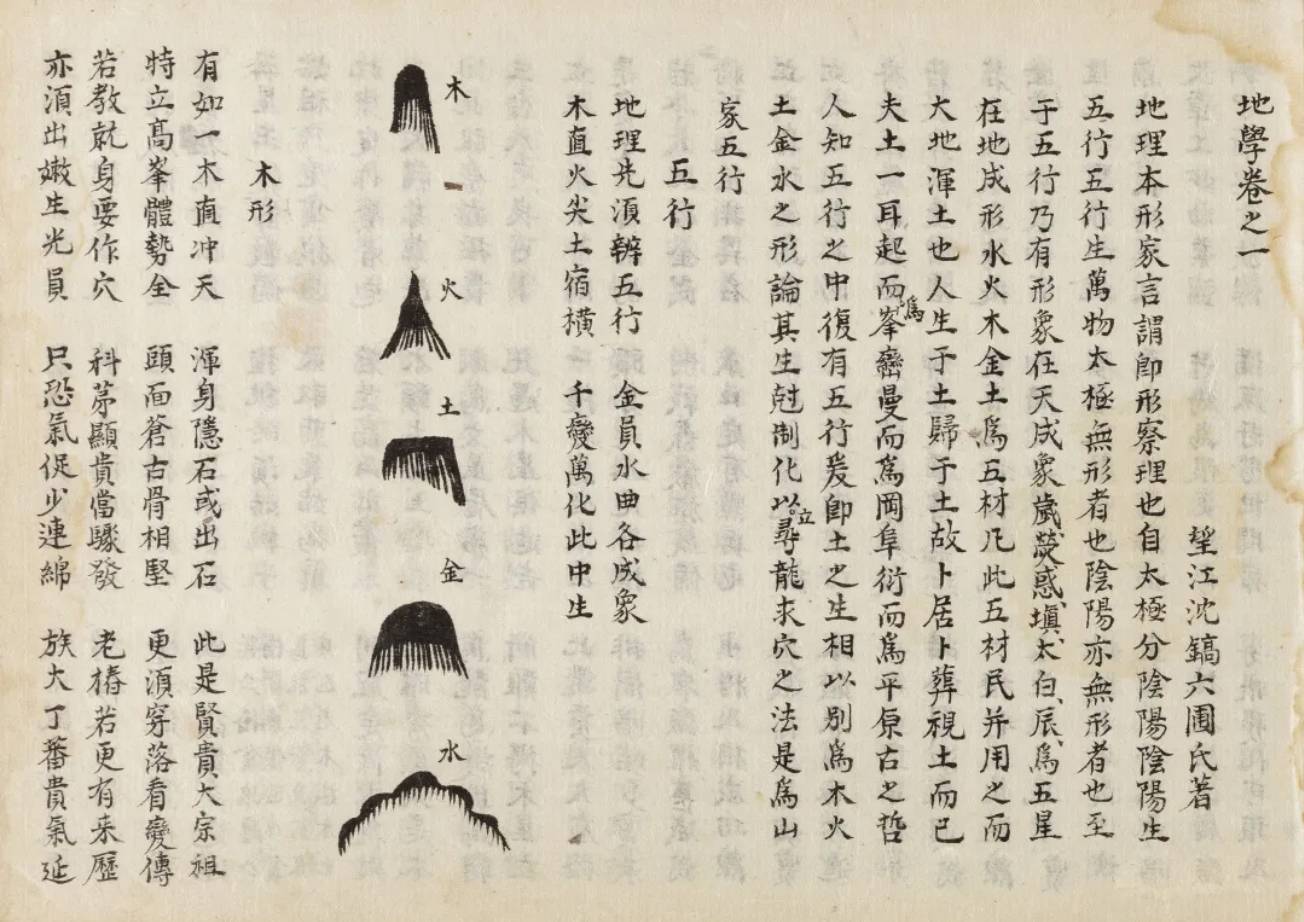 地學卷之一
望江沈鎬六圃氏著
地理本形家言謂卽形察理也自太極分陰陽陰陽生
五行五行生萬物太極無形者也陰陽亦無形者也至
于五行乃有形象在天成象歲熒惑塡太白辰爲五星
在地成形水火木金土爲五材凡此五材民并用之而
大地渾土也人生于土歸于土故卜居卜葬視土而已
夫土一耳起而爲峯巒曼而爲岡阜衍而爲平原古之哲
人知五行之中復有五行爰卽土之生相以別爲木火
土金水之形論其生尅制化以立尋龍求穴之法是爲山
家五行
五行
地理先湏辨五行　金員水曲各成象
木直火尖土宿橫　千變萬化此中生
木
火
土
金
水
木形
有如一木直冲天　渾身隱石或出石　此是賢貴大宗祖
特立高峯體勢全　頭面蒼古骨相堅　更湏穿落看變傳
若教就身要作穴　科苐顯貴當驟發　老樁若更有来歷
亦湏出嫩生光員　只恐氣促少連綿　族大丁蕃貴氣延